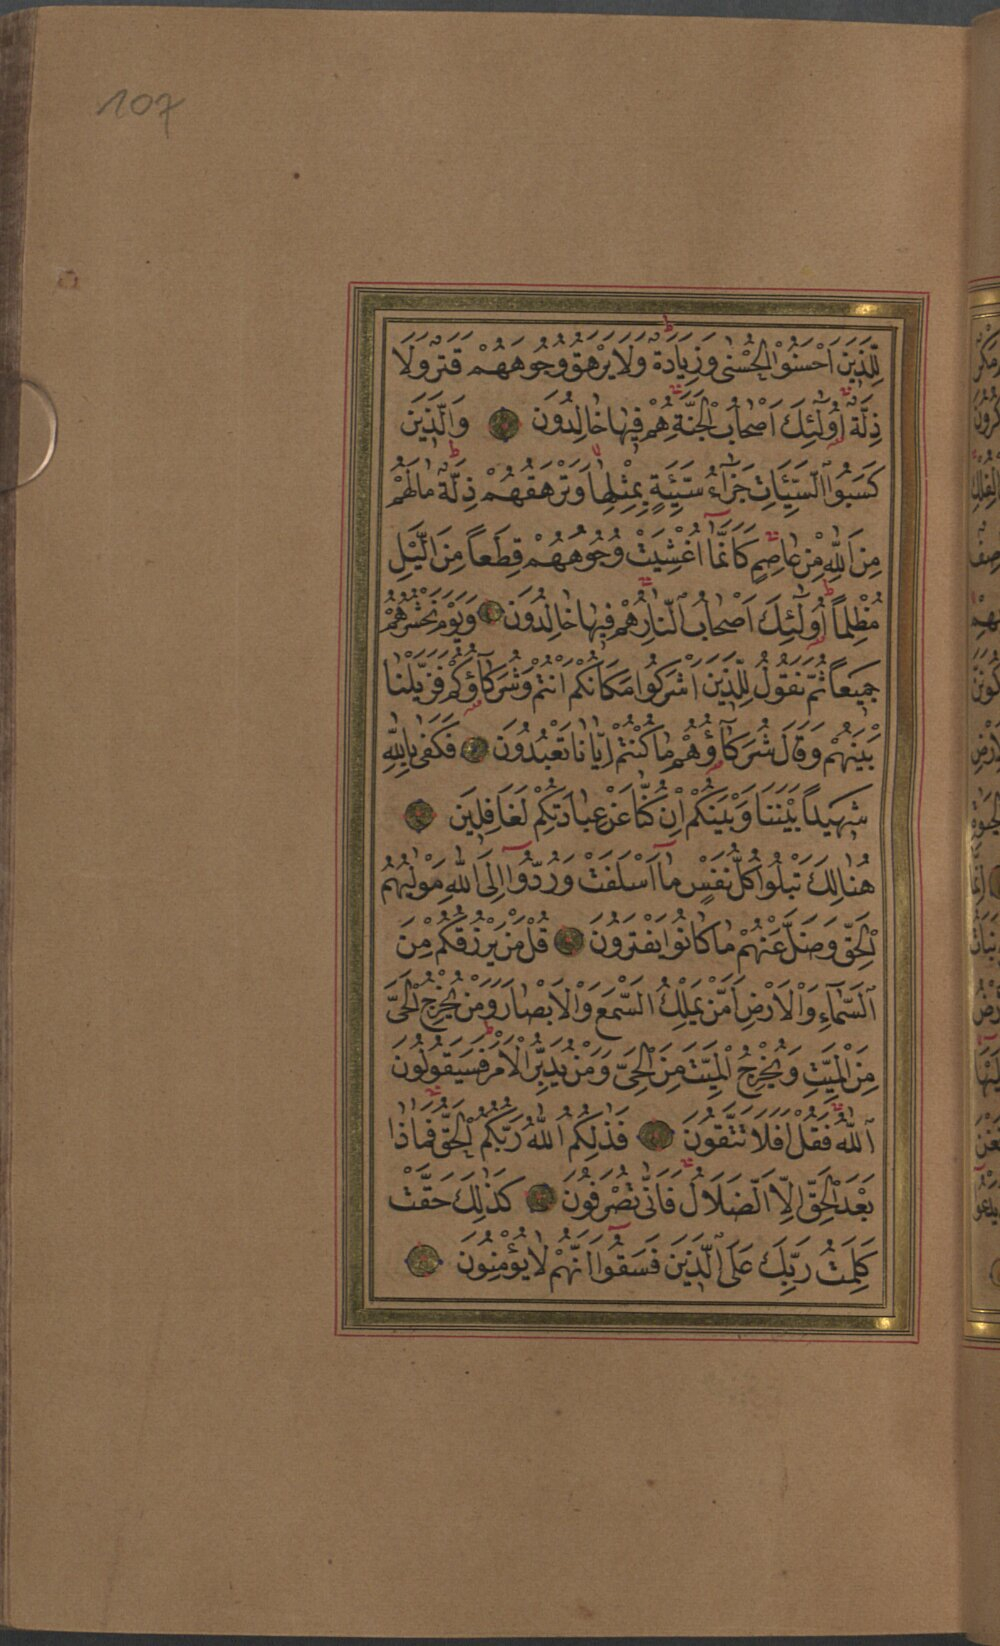 107
لِلَّذِينَ اَحْسَنُوا الْحُسْنٰى وَزِيَادَةٌ وَلَا يَرْهَقُ وُجُوهَهُمْ قَتَرٌ وَلَا
ذِلَّةٌ اُولٰٓئِكَ اَصْحَابُ الْجَنَّةِ هُمْ فِيهَا خَالِدُونَ وَالَّذِينَ
كَسَبُوا السَّيِّئَاتِ جَزَٓاءُ سَيِّئَةٍ بِمِثْلِهَا وَتَرْهَقُهُمْ ذِلَّةٌ مَا لَهُمْ
مِنَ اللّٰهِ مِنْ عَاصِمٍ كَاَنَّمَٓا اُغْشِيَتْ وُجُوهُهُمْ قِطَعاً مِنَ الَّيْلِ
مُظْلِماً اُولٰٓئِكَ اَصْحَابُ النَّارِ هُمْ فِيهَا خَالِدُونَ وَيَوْمَ نَحْشُرُهُمْ
جَمِيعاً ثُمَّ نَقُولُ لِلَّذِينَ اَشْرَكُوا مَكَانَكُمْ اَنْتُمْ وَشُرَكَٓاؤُكُمْ فَزَيَّلْنَا
بَيْنَهُمْ وَقَالَ شُرَكَٓاؤُهُمْ مَا كُنْتُمْ اِيَّانَا تَعْبُدُونَ فَكَفٰى بِاللّٰهِ
شَهِيداً بَيْنَنَا وَبَيْنَكُمْ اِنْ كُنَّا عَنْ عِبَادَتِكُمْ لَغَافِلِينَ
هُنَالِكَ تَبْلُوا كُلُّ نَفْسٍ مَٓا اَسْلَفَتْ وَرُدُّٓوا اِلَى اللّٰهِ مَوْلٰيهُمُ
الْحَقِّ وَضَلَّ عَنْهُمْ مَا كَانُوا يَفْتَرُونَ قُلْ مَنْ يَرْزُقُكُمْ مِنَ
السَّمَٓاءِ وَالْاَرْضِ اَمَّنْ يَمْلِكُ السَّمْعَ وَالْاَبْصَارَ وَمَنْ يُخْرِجُ الْحَيَّ
مِنَ الْمَيِّتِ وَيُخْرِجُ الْمَيِّتَ مِنَ الْحَيِّ وَمَنْ يُدَبِّرُ الْاَمْرَ فَسَيَقُولُونَ
اللّٰهُ فَقُلْ اَفَلَا تَتَّقُونَ فَذٰلِكُمُ اللّٰهُ رَبُّكُمُ الْحَقُّ فَمَاذَا
بَعْدَ الْحَقِّ اِلَّا الضَّلَالُ فَاَنّٰى تُصْرَفُونَ كَذٰلِكَ حَقَّتْ
كَلِمَتُ رَبِّكَ عَلَى الَّذِينَ فَسَقُٓوا اَنَّهُمْ لَا يُؤْمِنُونَ